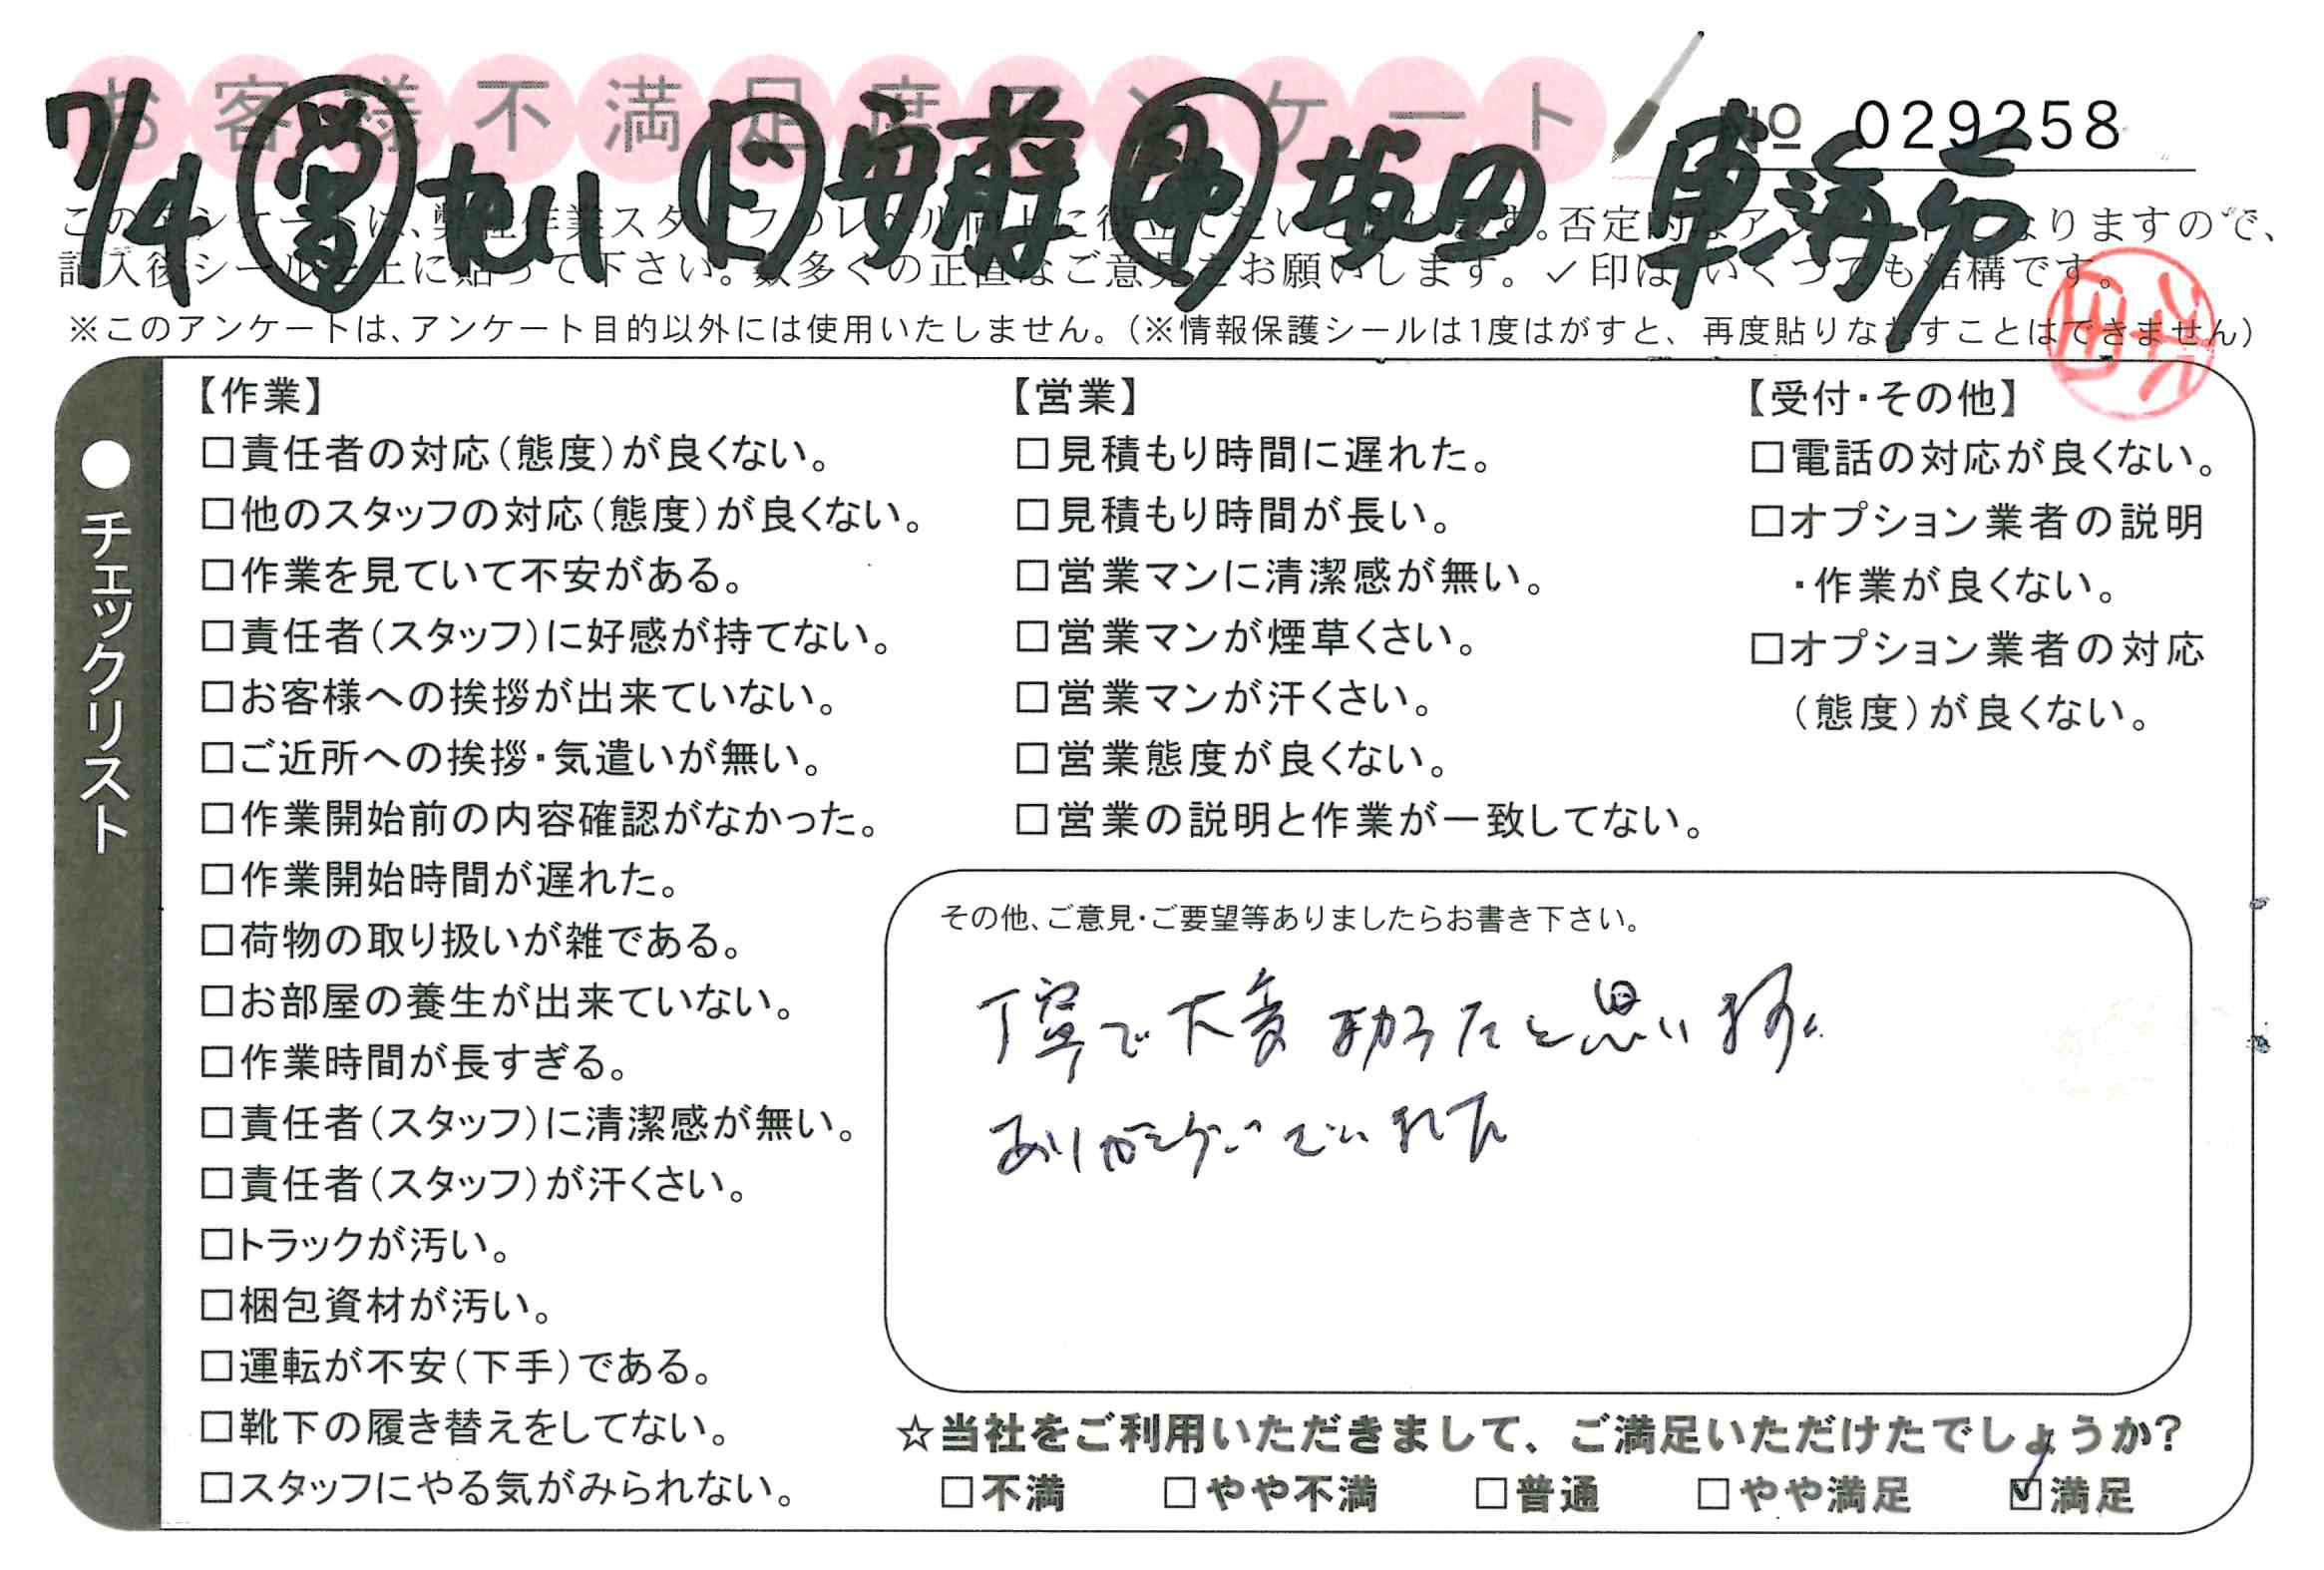 お客様不満足度アンケート
№ 029258
7/4 営 旭川 ド 安藤 助 坂田 東海
このアンケートは、弊社作業スタッフのレベル向上に役立てたいと思います。否定的なアンケートになりますので、
記入後シールを上に貼って下さい。数多くの正直なご意見をお願いします。✓印は、いくつでも結構です。
※このアンケートは、アンケート目的以外には使用いたしません。（※情報保護シールは1度はがすと、再度貼りなおすことはできません）
●チェックリスト
【作業】
□責任者の対応（態度）が良くない。
□他のスタッフの対応（態度）が良くない。
□作業を見ていて不安がある。
□責任者（スタッフ）に好感が持てない。
□お客様への挨拶が出来ていない。
□ご近所への挨拶・気遣いが無い。
□作業開始前の内容確認がなかった。
□作業開始時間が遅れた。
□荷物の取り扱いが雑である。
□お部屋の養生が出来ていない。
□作業時間が長すぎる。
□責任者（スタッフ）に清潔感が無い。
□責任者（スタッフ）が汗くさい。
□トラックが汚い。
□梱包資材が汚い。
□運転が不安（下手）である。
□靴下の履き替えをしてない。
□スタッフにやる気がみられない。
【営業】
□見積もり時間に遅れた。
□見積もり時間が長い。
□営業マンに清潔感が無い。
□営業マンが煙草くさい。
□営業マンが汗くさい。
□営業態度が良くない。
□営業の説明と作業が一致してない。
【受付・その他】
□電話の対応が良くない。
□オプション業者の説明
・作業が良くない。
□オプション業者の対応
（態度）が良くない。
その他、ご意見・ご要望等ありましたらお書き下さい。
丁寧で大変助ったと思います。
ありがとうございました
☆当社をご利用いただきまして、ご満足いただけたでしょうか？
□不満 □やや不満 □普通 □やや満足 ☑満足